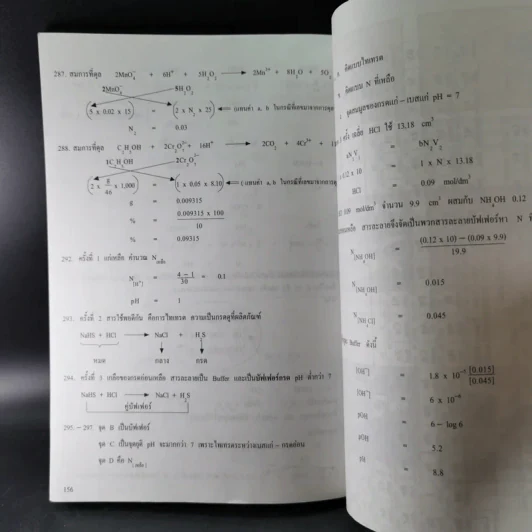 287. สมการที่ดุล 2MnO₄⁻ + 6H⁺ + 5H₂O₂ ⟶ 2Mn²⁺ + 8H₂O + 5O₂
2MnO₄⁻ 5H₂O₂
5 x 0.02 x 15 = 2 x N₂ x 25 (แทนค่า a, b ในกรณีที่เลขมาจากการดุล
N₂ = 0.03
288. สมการที่ดุล C₂H₅OH + 2Cr₂O₇²⁻ + 16H⁺ ⟶ 2CO₂ + 4Cr³⁺ + 11
1C₂H₅OH 2Cr₂O₇²⁻
2 x g/46 x 1,000 = 1 x 0.05 x 8.10 (แทนค่า a, b ในกรณีที่เลขมาจากการดุล
g = 0.009315
% = 0.009315 x 100 / 10
% = 0.09315
292. ครั้งที่ 1 แก่เหลือ คำนวณ Nเหลือ
N[H⁺] = 4 – 1 / 30 = 0.1
pH = 1
293. ครั้งที่ 2 สารใช้พอดีกัน คือการไทเทรต ความเป็นกรดดูที่ผลิตภัณฑ์
NaHS + HCl ⟶ NaCl + H₂S
หมด กลาง กรด
294. ครั้งที่ 3 เกลือของกรดอ่อนเหลือ สารละลายเป็น Buffer และเป็นบัฟเฟอร์กรด pH ต่ำกว่า 7
NaHS + HCl ⟶ NaCl + H₂S
คู่บัฟเฟอร์
295.–297 จุด B เป็นบัฟเฟอร์
จุด C เป็นจุดยุติ pH จะมากกว่า 5 เพราะไทเทรตระหว่างเบสแก่ – กรดอ่อน
จุด D คือ N(เหลือ)
156
คิดแบบไทเทรต
คิดแบบ N ที่เหลือ
จุดสมมูลของกรดแก่ – เบสแก่ pH = 7
ครั้ง เฉลี่ย HCl ใช้ 13.18 cm³
= bNᵦVᵦ
0.12 x 10 = 1 x N x 13.18
HCl = 0.09 mol/dm³
mol/dm³ จำนวน 9.9 cm³ ผสมกับ NH₄OH 0.12
สารละลายซึ่งจัดเป็นพวกสารละลายบัฟเฟอร์หา N
N[NH₄OH] = (0.12 x 10) – (0.09 x 9.9) / 19.9
N[NH₄OH] = 0.015
N[NH₄Cl] = 0.045
Buffer ดังนี้
[OH⁻] = 1.8 x 10⁻⁵ [0.015] / [0.045]
[OH⁻] = 6 x 10⁻⁶
pOH = 6 – log 6
pOH = 5.2
pH = 8.8